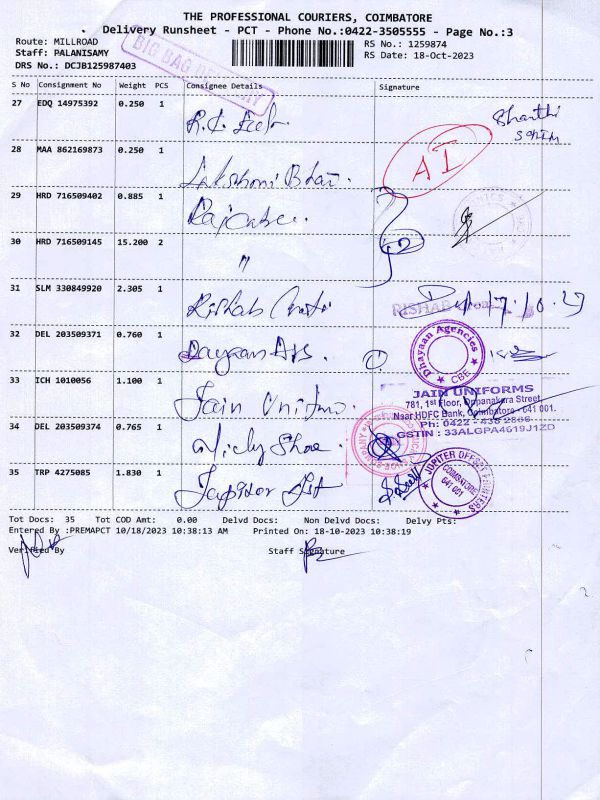 THE PROFESSIONAL COURIERS, COIMBATORE
Delivery Runsheet - PCT - Phone No.:0422-3505555 - Page No.:3
Route: MILLROAD
Staff: PALANISAMY
DRS No.: DCJB125987403
BIG BAG
RS No.: 1259874
RS Date: 18-Oct-2023
S No Consignment No Weight PCS Consignee Details Signature
27 EDQ 14975392 0.250 1
Bharthi
28 MAA 862169873 0.250 1
Lakshmi Bhai.
AI
29 HRD 716509402 0.885 1
30 HRD 716509145 15.200 2
"
31 SLM 330849920 2.305 1
Rishab
RISHAB
32 DEL 203509371 0.760 1
Dayaan Ads.
1
Dhayaan Agencies
CBE
33 ICH 1010056 1.100 1
Jain
JAIN UNIFORMS
781, 1st Floor, Oppanakara Street,
Near HDFC Bank, Coimbatore - 641 001.
Ph: 0422 - 438 2866
GSTIN : 33ALGPA4619J1ZD
34 DEL 203509374 0.765 1
35 TRP 4275085 1.830 1
JUPITER OFFSET PRINTERS
COIMBATORE
641 001
Tot Docs: 35 Tot COD Amt: 0.00 Delvd Docs: Non Delvd Docs: Delvy Pts:
Entered By :PREMAPCT 10/18/2023 10:38:13 AM Printed On: 18-10-2023 10:38:19
Verified By Staff Signature